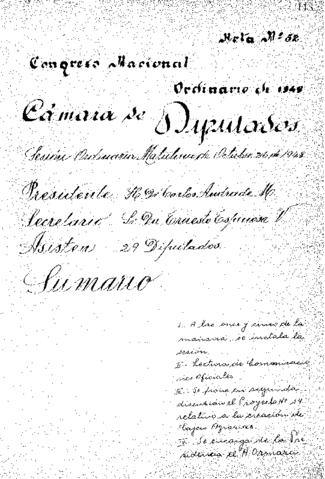 113
Acta Nº 52
Congreso Nacional
Ordinario de 1948
Cámara de Diputados
Sesión Ordinaria Matutina de Octubre 26 de 1948
Presidente H. Dr Carlos Andrade M.
Secretario Sr. Dn Ernesto Espinosa V.
Asisten 29 Diputados.
Sumario
I.- A las once y cinco de la
mañana, se instala la
sesión.
II- Lectura de Comunicacio
nes Oficiales
III- Se pone en segunda
discusión el Proyecto Nº 14
relativo a la creación de
Cajas Agrarias.
IV- Se encarga de la Pre
sidencia el H.